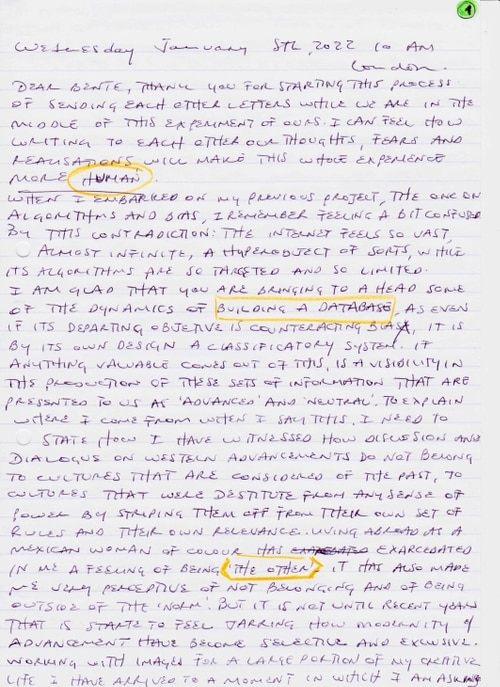 1
Wednesday January 5th, 2022 10 AM
London.
DEAR BENTE, THANK YOU FOR STARTING THIS PROCESS
OF SENDING EACH OTHER LETTERS WHILE WE ARE IN THE
MIDDLE OF THIS EXPERIMENT OF OURS. I CAN FEEL HOW
WRITING TO EACH OTHER OUR THOUGHTS, FEARS AND
REALISATIONS WILL MAKE THIS WHOLE EXPERIENCE
MORE HUMAN.
WHEN I EMBARKED ON MY PREVIOUS PROJECT, THE ONE ON
ALGORITHMS AND BIAS, I REMEMBER FEELING A BIT CONFUSED
BY THIS CONTRADICTION: THE INTERNET FEELS SO VAST,
ALMOST INFINITE, A HYPEROBJECT OF SORTS, WHILE
ITS ALGORITHMS ARE SO TARGETED AND SO LIMITED.
I AM GLAD THAT YOU ARE BRINGING TO A HEAD SOME
OF THE DYNAMICS OF BUILDING A DATABASE, AS EVEN
IF ITS DEPARTING OBJETIVE IS COUNTERACTING BIAS, IT IS
BY ITS OWN DESIGN A CLASSIFICATORY SYSTEM. IF
ANYTHING VALUABLE COMES OUT OF THIS, IS A VISIBILITY IN
THE PRODUCTION OF THESE SETS OF INFORMATION THAT ARE
PRESENTED TO US AS 'ADVANCED' AND 'NEUTRAL'. TO EXPLAIN
WHERE I COME FROM WHEN I SAY THIS, I NEED TO
STATE HOW I HAVE WITNESSED HOW DISCUSSION AND
DIALOGUE ON WESTERN ADVANCEMENTS DO NOT BELONG
TO CULTURES THAT ARE CONSIDERED OF THE PAST, TO
CULTURES THAT WERE DESTITUTE FROM ANY SENSE OF
POWER BY STRIPING THEM OFF FROM THEIR OWN SET OF
RULES AND THEIR OWN RELEVANCE. LIVING ABROAD AS A
MEXICAN WOMAN OF COLOUR HAS EXARCEDATED
IN ME A FEELING OF BEING 'THE OTHER'. IT HAS ALSO MADE
ME VERY PERCEPTIVE OF NOT BELONGING AND OF BEING
OUTSIDE OF THE 'NORM'. BUT IT IS NOT UNTIL RECENT YEARS
THAT IS STARTS TO FEEL JARRING HOW MODERNITY &
ADVANCEMENT HAVE BECOME SELECTIVE AND EXCLUSIVE.
WORKING WITH IMAGES FOR A LARGE PORTION OF MY CREATIVE
LIFE I HAVE ARRIVED TO A MOMENT IN WHICH I AM ASKING